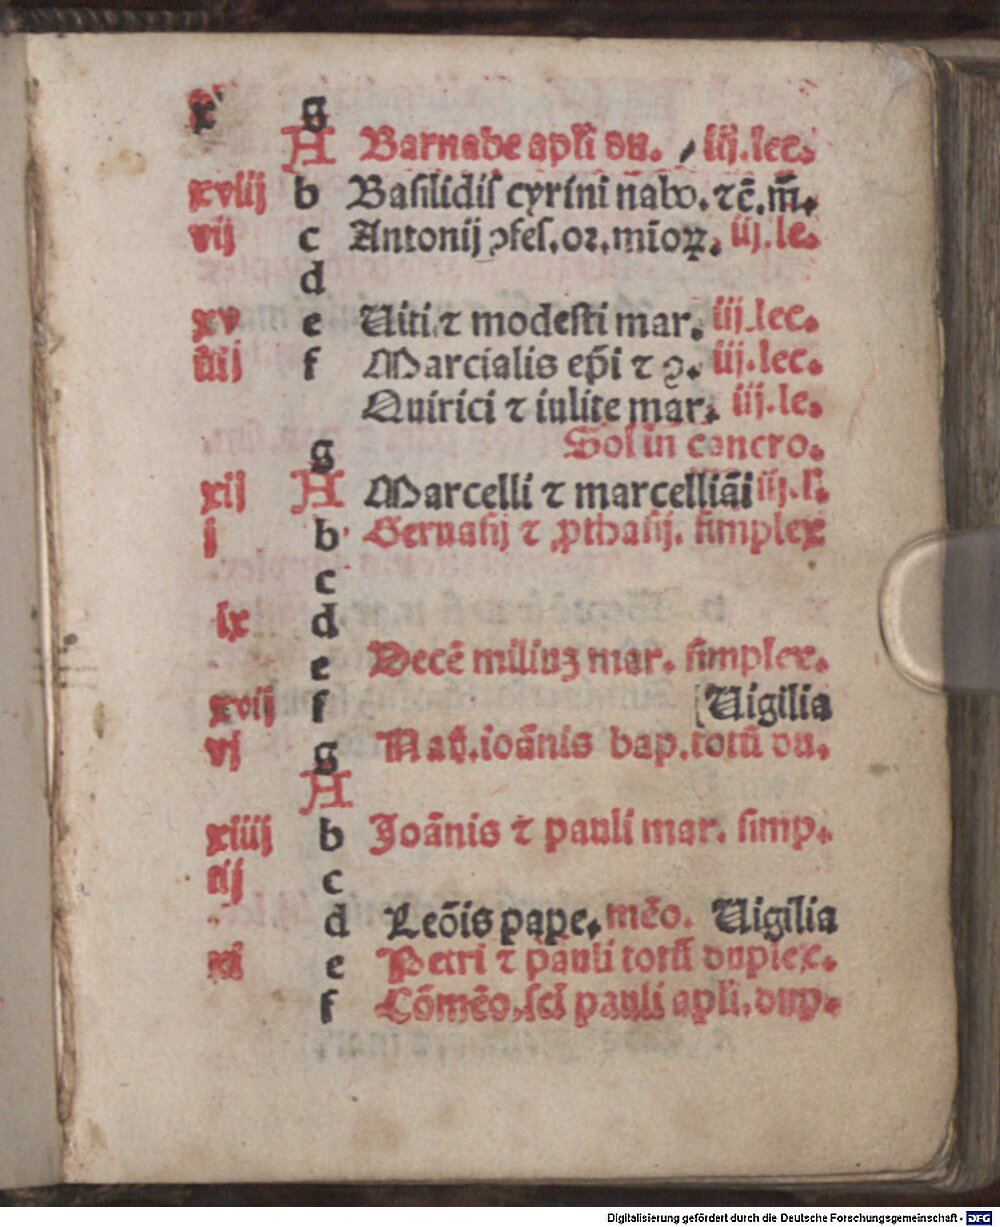 x g
A Barnabe apľi du. iij.lec.
xviij b Basilidis cyrini nabo. ⁊c̄. m̄.
vij c Antonij ꝯfes. or. mīoꝝ. iij.le.
d
xv e Uiti ⁊ modesti mar. iij.lec.
iiij f Marcialis ep̄i ⁊ ꝯ. iij.lec.
Quirici ⁊ iulite mar. iij.le.
g Sol in cancro.
xij A Marcelli ⁊ marcelliāi iij.l.
j b Geruasij ⁊ ꝓthasij. simplex
c
ix d
e Decē miliuꝫ mar. simplex.
xvij f [Uigilia
vj g Nati. ioānis bap. totū du.
A
xiiij b Joānis ⁊ pauli mar. simp.
iij c
d Leōis pape. mēo. Uigilia
xi e Petri ⁊ pauli totū duplex.
f Cōmēo. sci pauli apli. dup.
Digitalisierung gefördert durch die Deutsche Forschungsgemeinschaft - DFG